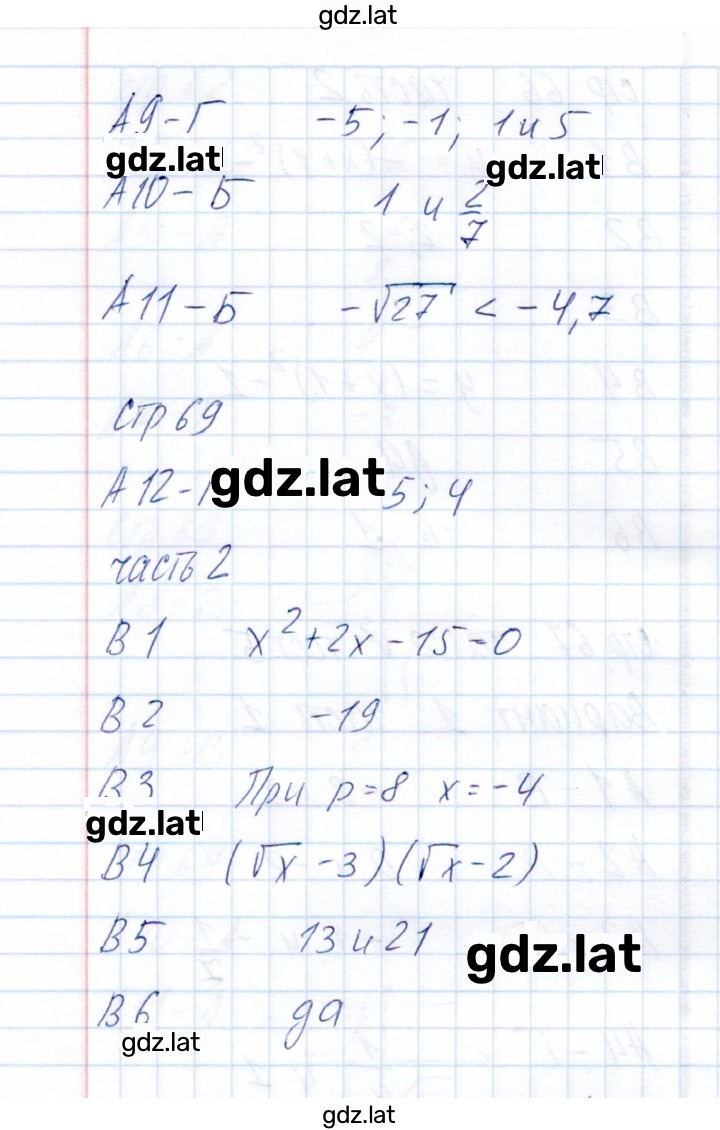 gdz.lat
А9-Г -5; -1; 1 и 5
gdz.lat gdz.lat
А10-Б 1 и 2/7
А11-Б -√27 < -4,7
стр 69
А12- gdz.lat 5; 4
часть 2
В1 x²+2x-15=0
В2 -19
В3 При p=8 x=-4
gdz.lat
В4 (√x-3)(√x-2)
В5 13 и 21
gdz.lat
В6 да
gdz.lat
gdz.lat